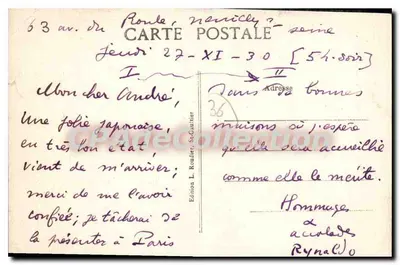 63 av. du Roule, Neuilly s. seine
CARTE POSTALE
jeudi 27-XI-30 [5 h. soir]
I
II
Adresse
36
Mon cher André,
Une jolie japonaise,
en très bon état
vient de m'arriver;
merci de me l'avoir
confiée; je tâcherai de
la présenter à Paris
dans de bonnes
maisons où j'espère
qu'elle sera accueillie
comme elle le mérite.
Hommages
&
accolades
Rynaldo
Edition L. Roudier, St-Cast